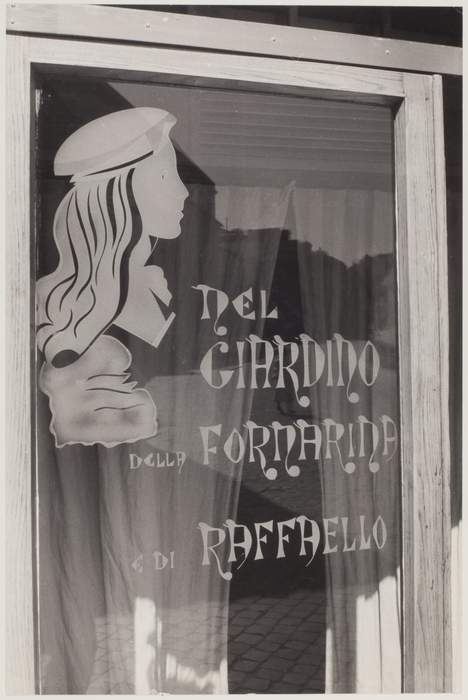 NEL
GIARDINO
DELLA FORNARINA
E DI RAFFAELLO